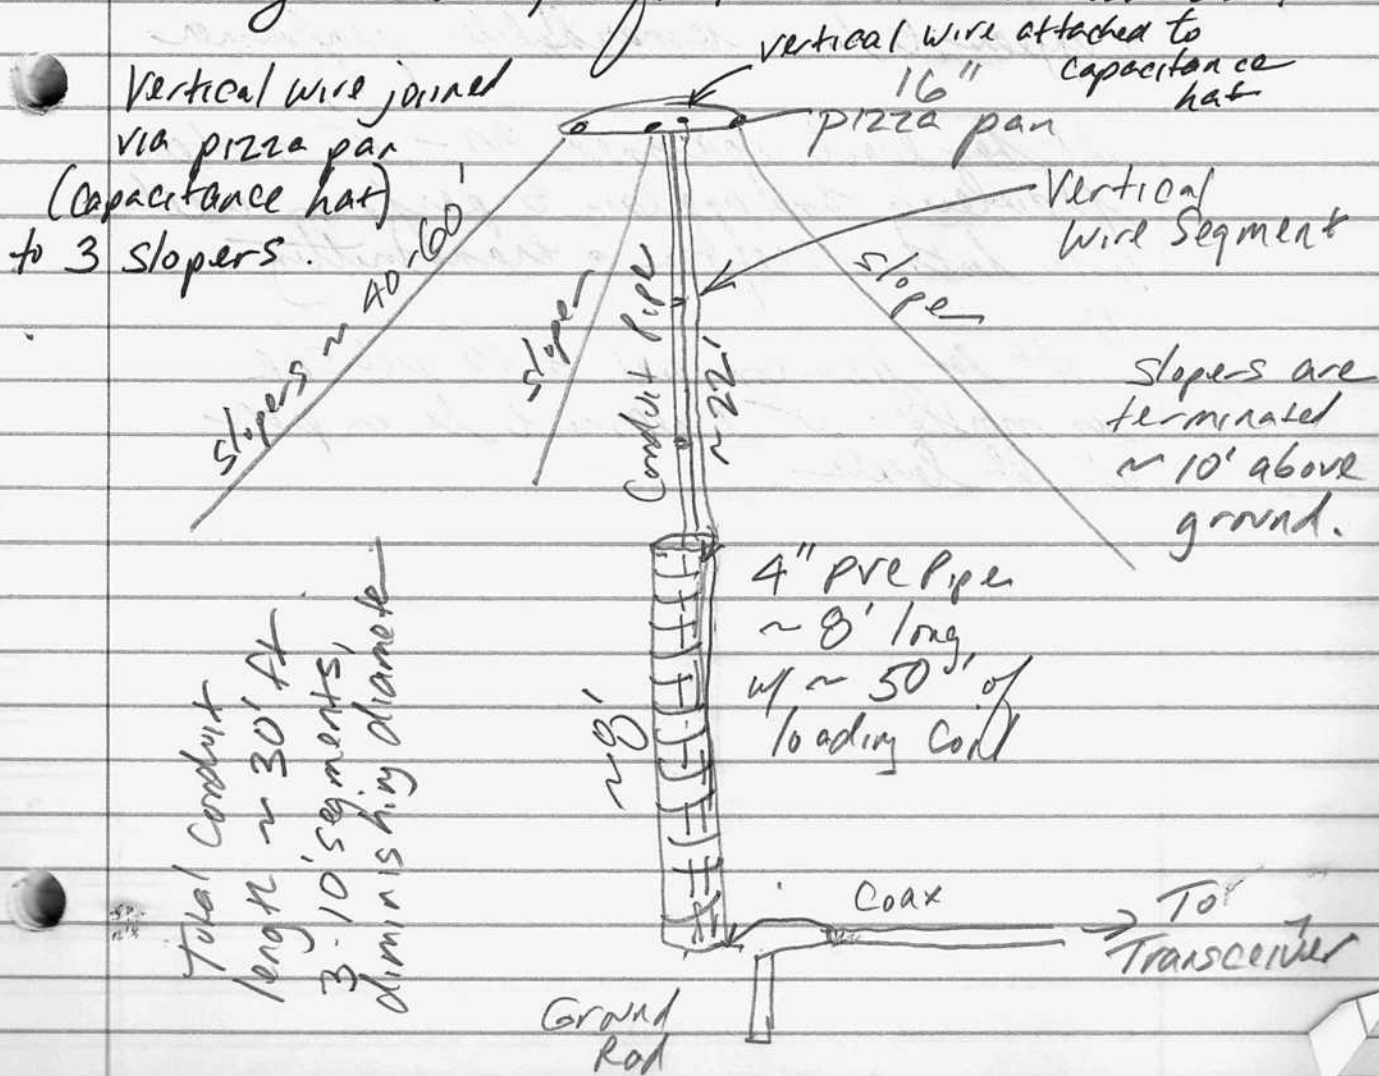 vertical wire attached to
capacitance
hat
Vertical wire joined
via pizza pan
(capacitance hat)
to 3 slopers.
16"
pizza pan
Vertical
Wire Segment
slopers ~ 40-60'
sloper
Conduit Pipe
~22'
sloper
slopers are
terminated
~ 10' above
ground.
4" PVC Pipe
~ 8' long,
w/ ~ 50' of
loading coil
~8'
Total Conduit
length ~ 30' ft
3-10' segments,
diminishing diameter
Coax
To
Transceiver
Ground
Rod